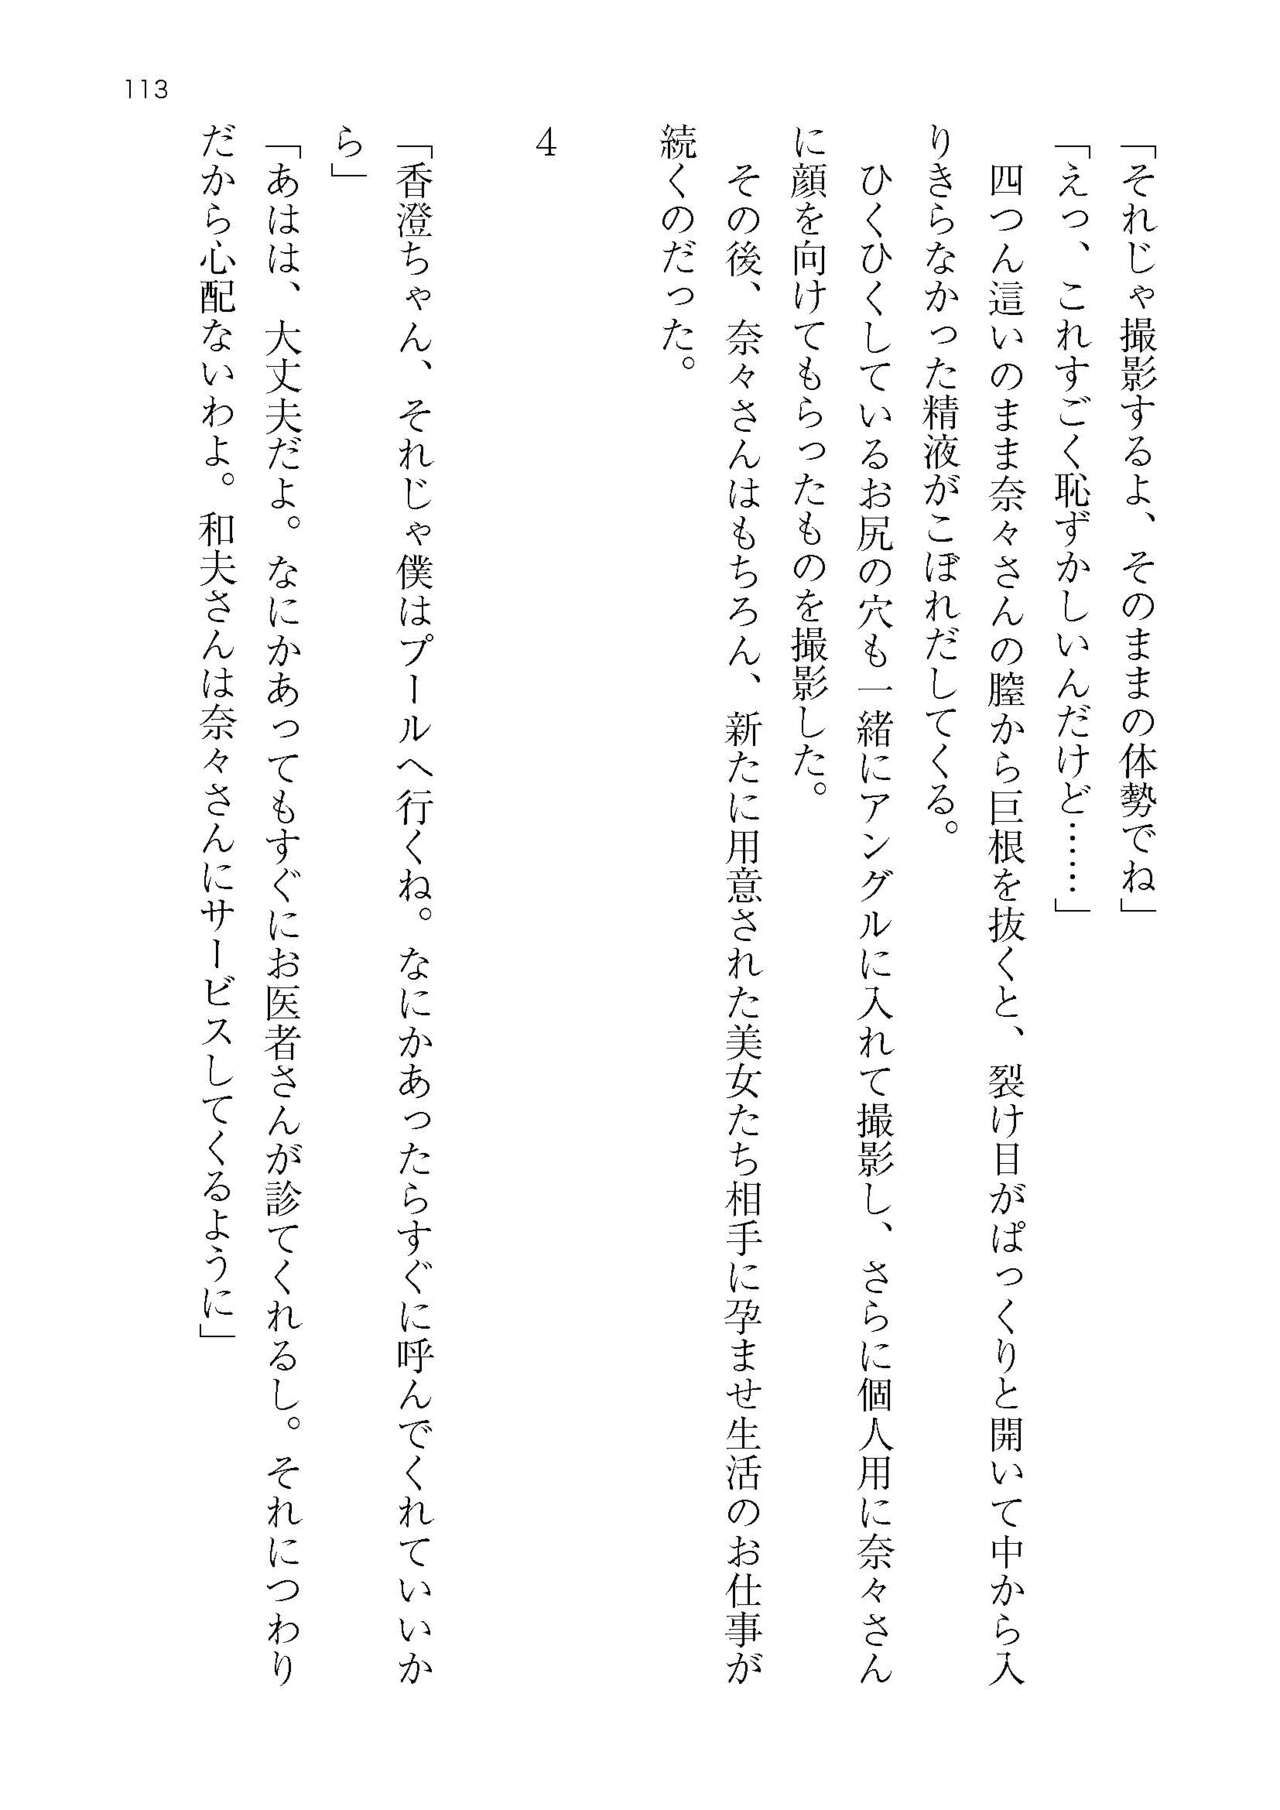 113
「それじゃ撮影するよ、そのままの体勢でね」
「えっ、これすごく恥ずかしいんだけど……」
四つん這いのまま奈々さんの膣から巨根を抜くと、裂け目がぱっくりと開いて中から入
りきらなかった精液がこぼれだしてくる。
ひくひくしているお尻の穴も一緒にアングルに入れて撮影し、さらに個人用に奈々さん
に顔を向けてもらったものを撮影した。
その後、奈々さんはもちろん、新たに用意された美女たち相手に孕ませ生活のお仕事が
続くのだった。
4
「香澄ちゃん、それじゃ僕はプールへ行くね。なにかあったらすぐに呼んでくれていいか
ら」
「あはは、大丈夫だよ。なにかあってもすぐにお医者さんが診てくれるし。それにつわり
だから心配ないわよ。和夫さんは奈々さんにサービスしてくるように」